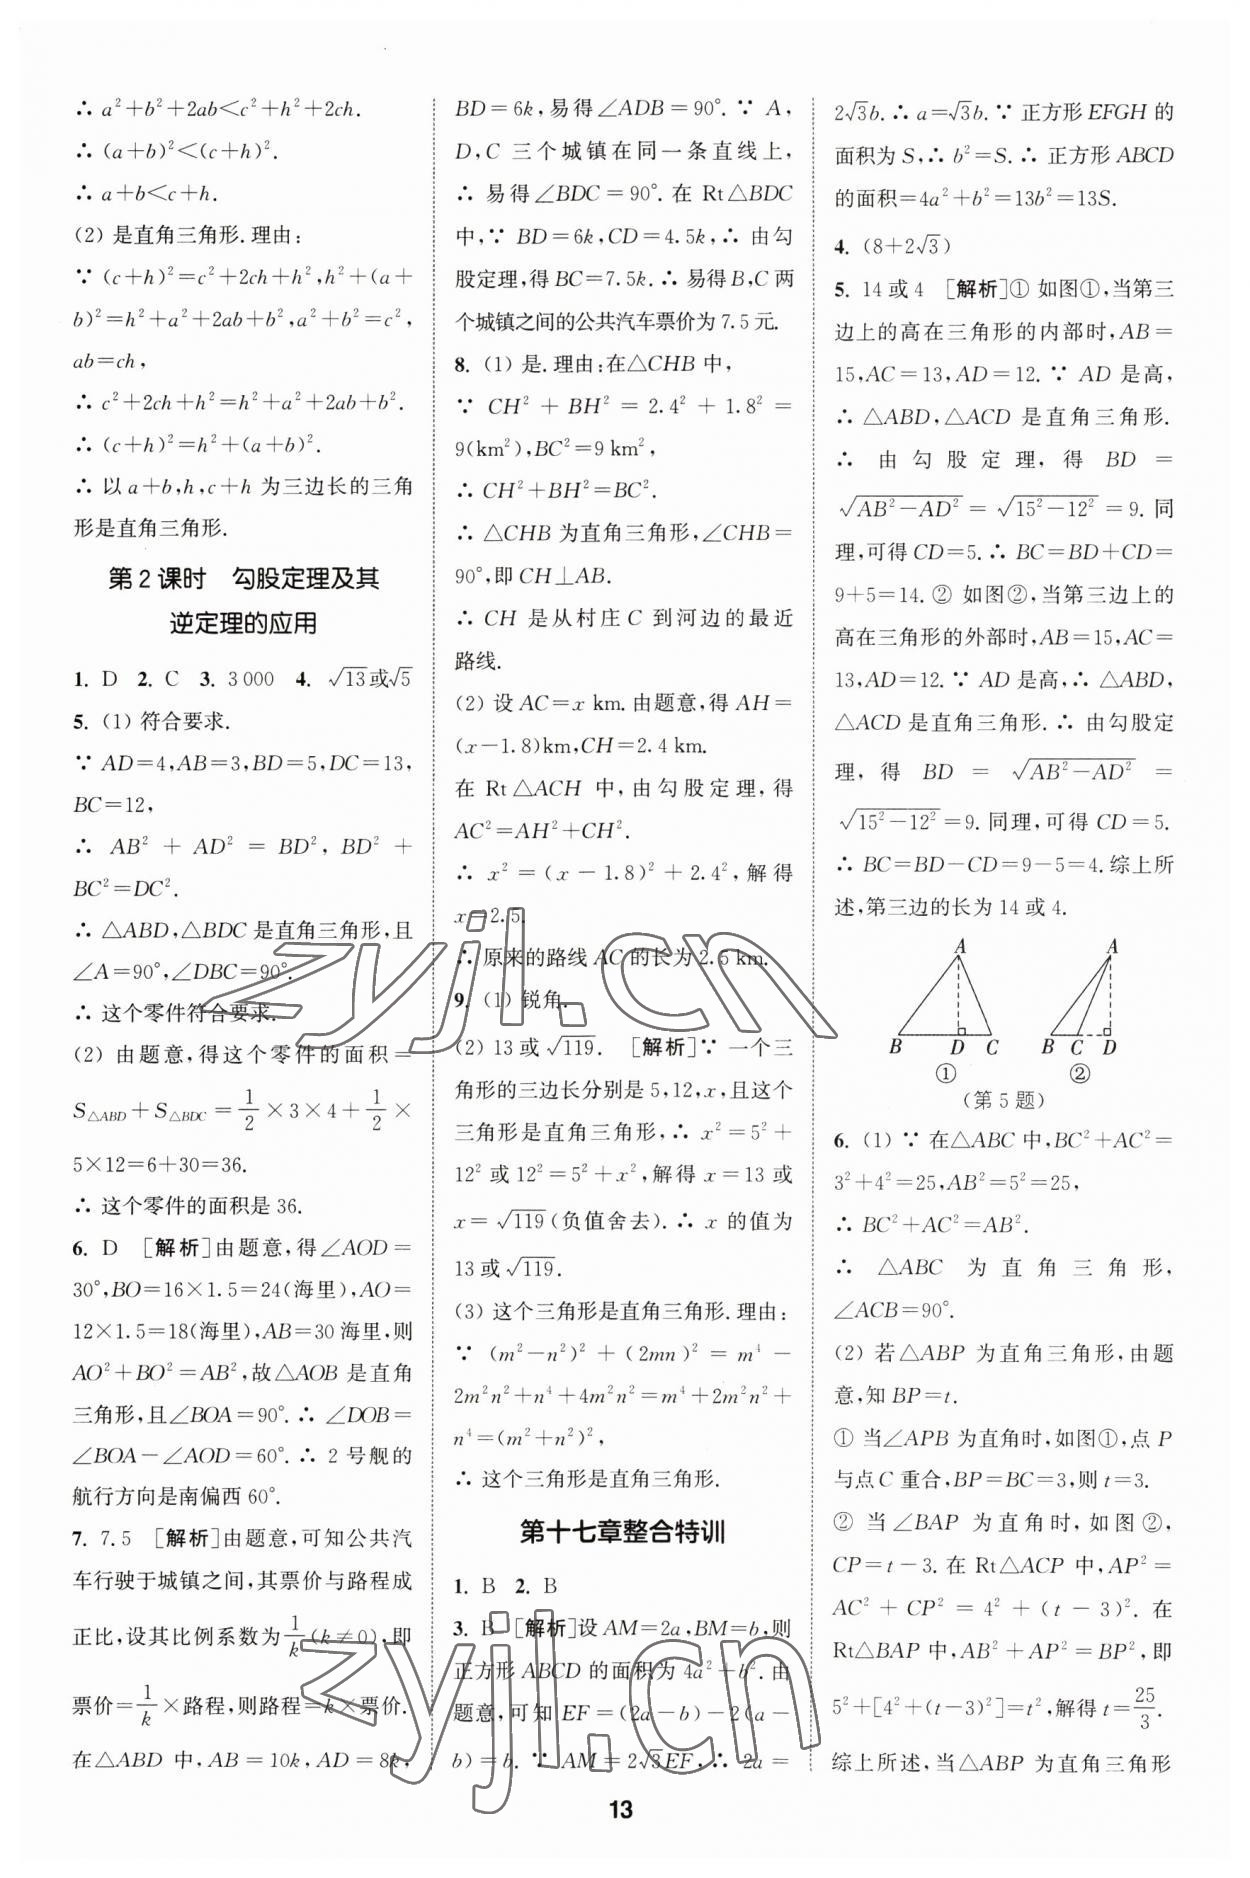 ∴ a²+b²+2ab<c²+h²+2ch.
∴ (a+b)²<(c+h)².
∴ a+b<c+h.
(2) 是直角三角形.理由:
∵ (c+h)²=c²+2ch+h²,h²+(a+
b)²=h²+a²+2ab+b²,a²+b²=c²,
ab=ch,
∴ c²+2ch+h²=h²+a²+2ab+b².
∴ (c+h)²=h²+(a+b)².
∴ 以 a+b,h,c+h 为三边长的三角
形是直角三角形.
第 2 课时 勾股定理及其
逆定理的应用
1. D 2. C 3. 3 000 4. √13或√5
5. (1) 符合要求.
∵ AD=4,AB=3,BD=5,DC=13,
BC=12,
∴ AB² + AD² = BD², BD² +
BC²=DC².
∴ △ABD,△BDC 是直角三角形,且
∠A=90°,∠DBC=90°.
∴ 这个零件符合要求.
(2) 由题意,得这个零件的面积=
S△ABD + S△BDC = 1/2 × 3 × 4 + 1/2 ×
5×12=6+30=36.
∴ 这个零件的面积是 36.
6. D [解析]由题意,得∠AOD=
30°,BO=16×1.5=24(海里),AO=
12×1.5=18(海里),AB=30 海里,则
AO²+BO²=AB²,故△AOB 是直角
三角形,且∠BOA=90°.∴ ∠DOB=
∠BOA-∠AOD=60°.∴ 2 号舰的
航行方向是南偏西 60°.
7. 7.5 [解析]由题意,可知公共汽
车行驶于城镇之间,其票价与路程成
正比,设其比例系数为1/k(k≠0),即
票价=1/k×路程,则路程=k×票价.
在△ABD 中,AB=10k,AD=8k,
BD=6k,易得∠ADB=90°.∵ A,
D,C 三个城镇在同一条直线上,
∴ 易得∠BDC=90°.在 Rt△BDC
中,∵ BD=6k,CD=4.5k,∴ 由勾
股定理,得 BC=7.5k.∴ 易得B,C 两
个城镇之间的公共汽车票价为 7.5 元.
8. (1) 是.理由:在△CHB 中,
∵ CH² + BH² = 2.4² + 1.8² =
9(km²),BC²=9 km²,
∴ CH²+BH²=BC².
∴ △CHB 为直角三角形,∠CHB=
90°,即 CH⊥AB.
∴ CH 是从村庄 C 到河边的最近
路线.
(2) 设 AC=x km.由题意,得 AH=
(x-1.8)km,CH=2.4 km.
在 Rt△ACH 中,由勾股定理,得
AC²=AH²+CH².
∴ x²=(x-1.8)²+2.4²,解得
x=2.5.
∴ 原来的路线 AC 的长为 2.5 km.
9. (1) 锐角.
(2) 13 或√119. [解析]∵ 一个三
角形的三边长分别是 5,12,x,且这个
三角形是直角三角形,∴ x²=5²+
12² 或 12²=5²+x²,解得 x=13 或
x=√119(负值舍去).∴ x 的值为
13 或√119.
(3) 这个三角形是直角三角形.理由:
∵ (m²-n²)² + (2mn)² = m⁴ -
2m²n²+n⁴+4m²n²=m⁴+2m²n²+
n⁴=(m²+n²)²,
∴ 这个三角形是直角三角形.
第十七章整合特训
1. B 2. B
3. B [解析]设 AM=2a,BM=b,则
正方形 ABCD 的面积为 4a²+b².由
题意,可知 EF=(2a-b)-2(a-
b)=b.∵ AM=2√3EF,∴ 2a=
2√3b.∴ a=√3b.∵ 正方形 EFGH 的
面积为 S,∴ b²=S.∴ 正方形 ABCD
的面积=4a²+b²=13b²=13S.
4. (8+2√3)
5. 14 或 4 [解析]① 如图①,当第三
边上的高在三角形的内部时,AB=
15,AC=13,AD=12.∵ AD 是高,
∴ △ABD,△ACD 是直角三角形.
∴ 由勾股定理,得 BD=
√(AB²-AD²) = √(15²-12²) = 9. 同
理,可得 CD=5.∴ BC=BD+CD=
9+5=14. ② 如图②,当第三边上的
高在三角形的外部时,AB=15,AC=
13,AD=12.∵ AD 是高,∴ △ABD,
△ACD 是直角三角形.∴ 由勾股定
理,得 BD = √(AB²-AD²) =
√(15²-12²)=9.同理,可得 CD=5.
∴ BC=BD-CD=9-5=4.综上所
述,第三边的长为 14 或 4.
A A
B D C B C D
① ②
(第 5 题)
6. (1) ∵ 在△ABC 中,BC²+AC²=
3²+4²=25,AB²=5²=25,
∴ BC²+AC²=AB².
∴ △ABC 为直角三角形,
∠ACB=90°.
(2) 若△ABP 为直角三角形,由题
意,知 BP=t.
① 当∠APB 为直角时,如图①,点 P
与点 C 重合,BP=BC=3,则 t=3.
② 当∠BAP 为直角时,如图②,
CP=t-3.在 Rt△ACP 中,AP²=
AC²+CP²=4²+(t-3)².在
Rt△BAP 中,AB²+AP²=BP²,即
5²+[4²+(t-3)²]=t²,解得 t=25/3.
综上所述,当△ABP 为直角三角形
13
zyjl.cn
zyjl.cn